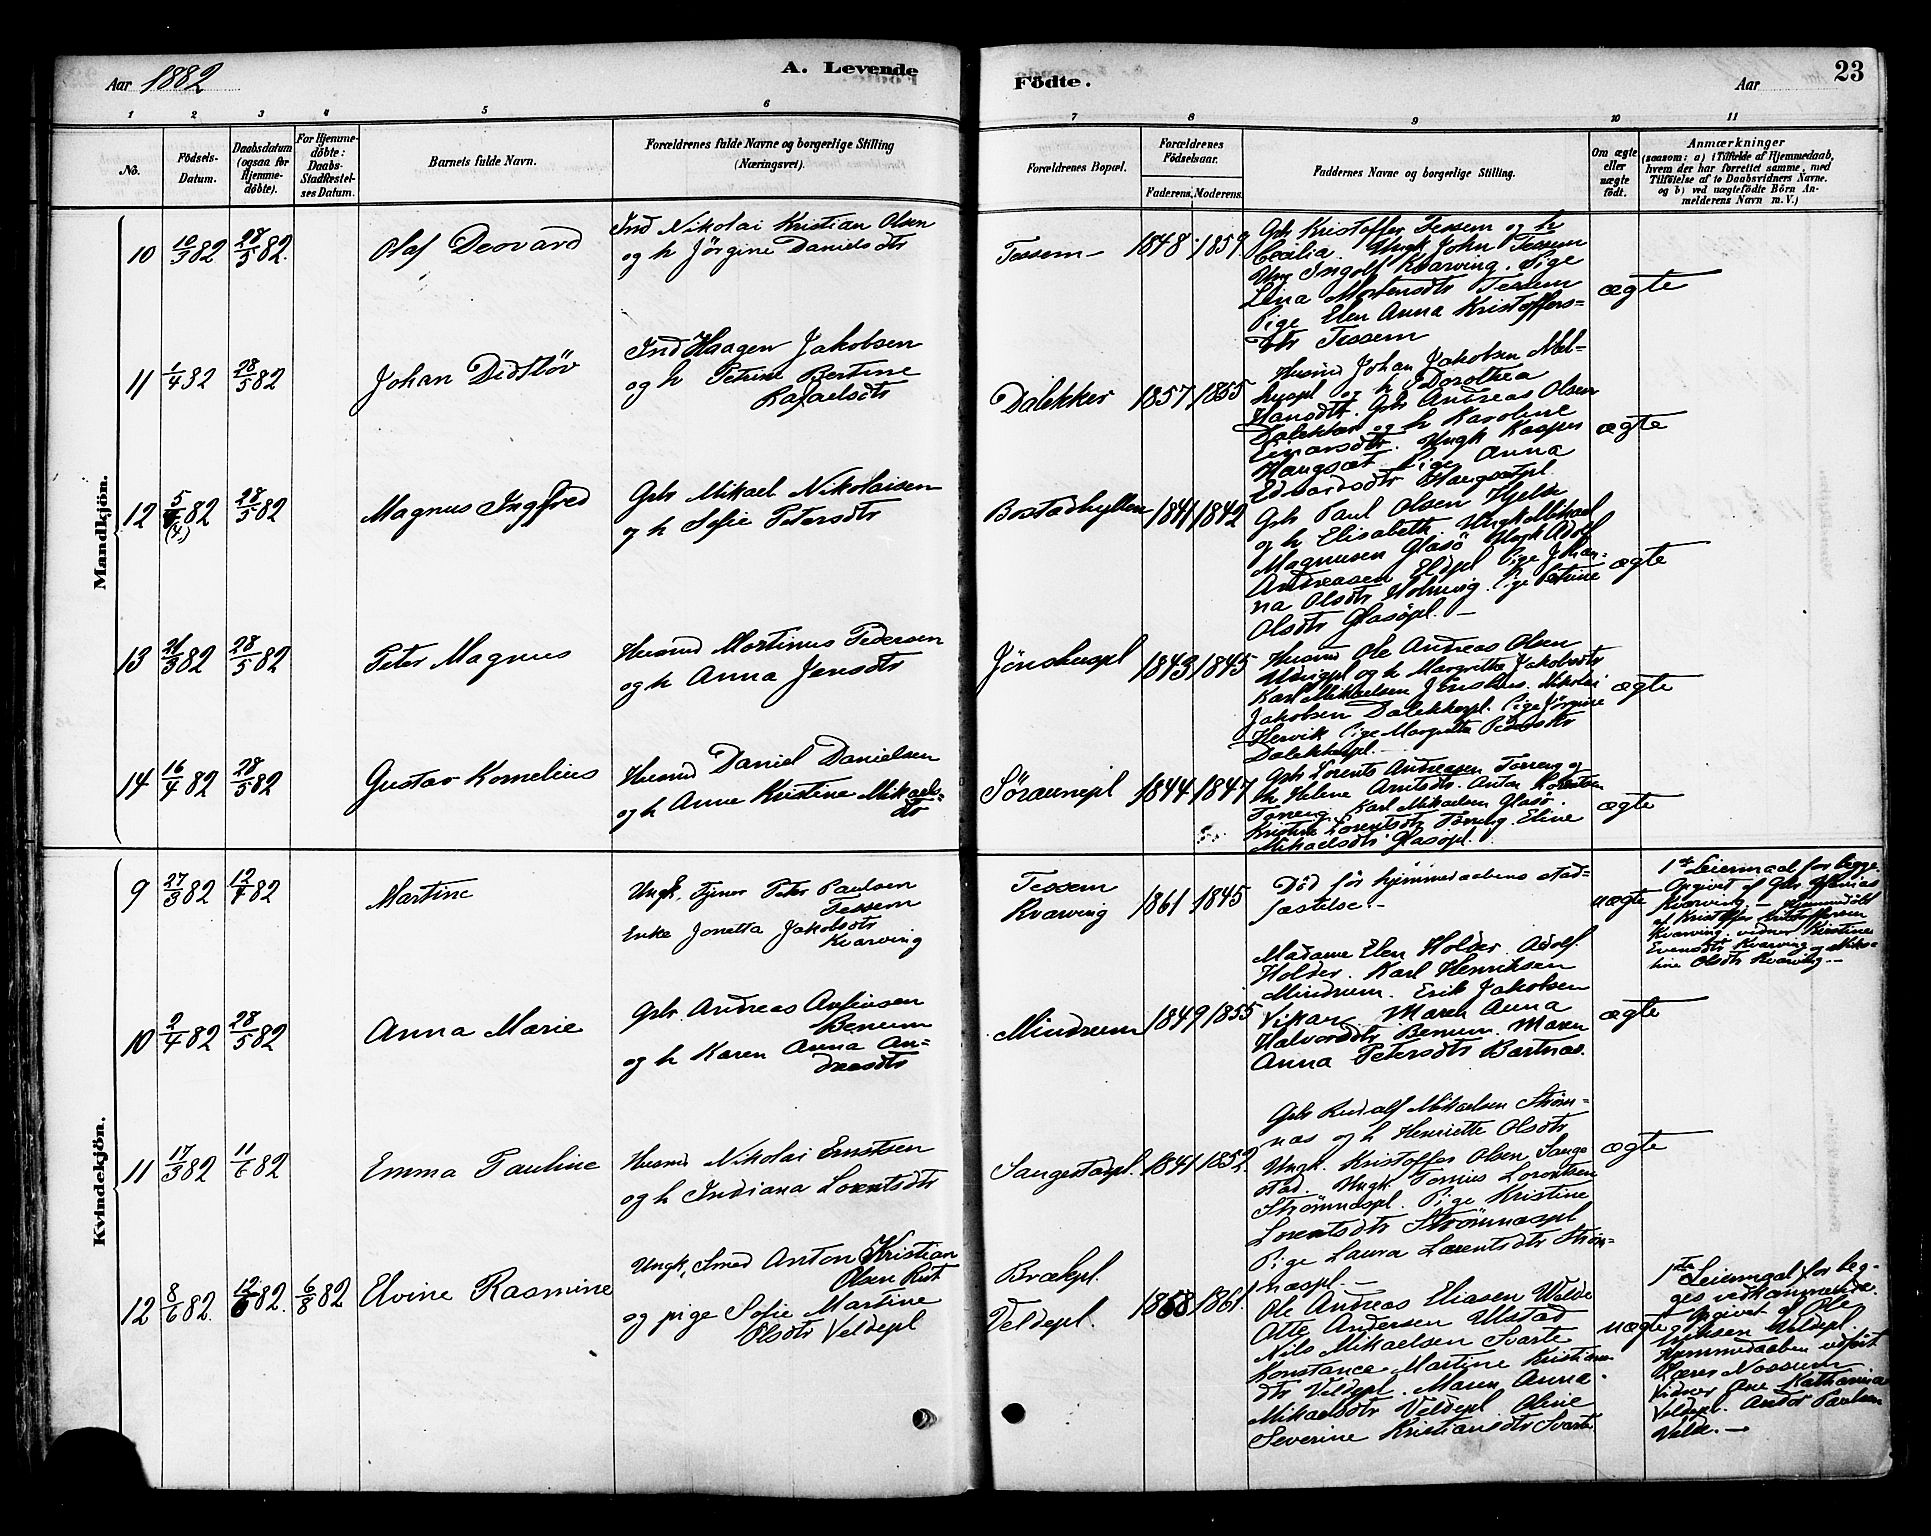 Aar 1882
A. Levende
Födte.
Aar
23
1 2 3 4 5 6 7 8 9 10 11
No.
Födsels-
Datum.
Daabsdatum
(ogsaa for
Hjemme-
döbte).
For Hjemme-
döbte:
Daabs-
Stadfæstel-
ses Datum.
Barnets fulde Navn.
Forældrenes fulde Navne og borgerlige Stilling
(Næringsvei).
Forældrenes Bopæl.
Forældrenes
Födselsaar.
Faderens. Moderens.
Faddernes Navne og borgerlige Stilling.
Om ægte
eller
uægte
födt.
Anmærkninger
(saasom: a) i Tilfælde af Hjemmedaab,
hvem der har forrettet samme, med
Tilföielse af to Daabsvidners Navne.
og b) ved uægtefödte Börn An-
melderens Navn m. V.)
Mandkjön.
10 10/3 82 28/5 82.
Olaf Deovard
Ind Nikolai Kristian Olsen
og h Jørgine Danielsdtr
Tessem
1848 1859.
Gbr Kristoffer Tessem og h
Cecilia. Ungk John Tessem
Ung Ingolf Kvarving. Pige
Lina Mortensdtr Tessem
Pige Elen Anna Kristoffers-
dtr Tessem
ægte
11 1/4 82 28/5 82
Johan Didkløv
Ind Haagen Jakobsen
og h Petrine Bertine
Rafaelsdtr
Dalekker
1857 1855
Husmd Johan Jakobsen Mel-
huspl og h Dorothea
Hansdtr. Gbr Andreas Olsen
Dalekker og h Karoline
Einarsdtr. Ungk Kasper
Haugsæt Pige Anna
Edvardsdtr Haugsætpl.
ægte
12 5/ 82 28/5 82
Magnus Ingfred
Gbr Mikael Nikolaisen
og h Sofie Petersdtr
Bostadhyllen
1841 1842
Gbr Paul Olsen Hjelde
og h Elisabeth. Ungk Mikael
Magnusen Glasø Ungk Adolf
Andreasen Eldpl Pige Johan-
na Olsdtr Holming. Pige Petrine
Olsdtr Glasøpl. —
ægte
13 21/3 82 28/5 82
Peter Magnus
Husmd Mortinus Pedersen
og h Anna Jensdtr
Jønshuspl
1843 1845
Husmd Ole Andreas Olsen
og h Margrethe Jakobsdtr
Karl Mikaelsen Jønshus. Nikolai
Jakobsen Dalekkerpl. Pige Jørgine
Hervik Pige Margretha Pedersdtr
Dalekkerpl. —
ægte
14 16/4 82 28/5 82
Gustav Kornelius
Husmd Daniel Danielsen
og h Anne Kristine Mikaels-
dtr
Søraunepl
1844 1847
Gbr Lorents Andreasen Torreng og
h Helene Arntsdtr. Anton Lorentsen
Torreng. Karl Mikaelsen Glasø.
Kristine Lorentsdtr Torreng. Eline
Mikaelsdtr Glasøpl.
ægte
Kvindekjön.
9 27/3 82 12/4 82
Martine
Ungk. Tjener Peter Paulsen
Tessem
Enke Jonetta Jakobsdtr
Kvarving
Tessem
Kvarving
1861 1845
Død før hjemmedaabens stad-
fæstelse. —
uægte
1ste Leiermaal for begge.
Opgivet af Gbr
Kvarving. — Hjemmedøbt
af Kristoffer Kristoffersen
Kvarving. vidner Kristine
Evensdtr Kvarving og Niko-
line Olsdtr Kvarving. —
10 2/4 82 28/5 82
Anna Marie
Gbr. Andreas Anfinsen
Benum
og h Karen Anna An-
dreasdtr
Mindrum
1849 1855
Madame Elen Holder. Adolf
Holder. Karl Henriksen
Mindrum. Erik Jakobsen
Vikan. Maren Anna
Halvorsdtr Benum. Maren
Anna Petersdtr Bartnæs.
ægte
11 17/3 82 11/6 82
Emma Pauline
Husmd Nikolai Ernstsen
og h Indiana Lorentsdtr
Sangestadpl.
1841 1852.
Gbr Rudolf Mikaelsen Strøm-
næs og h Henriette Olsdtr
Ungk. Kristoffer Olsen Sange
stad. Ungk Tonnius Lorentsen
Strømnæspl. Pige Kristine
Lorentsdtr Strømnæspl
Pige Laura Lorentsdtr Strøm-
næspl. —
ægte
12 8/6 82. 12/6 82. 6/8 82
Elvine Rasmine
Ungk, Smed Anton Kristian
Olsen Rist
og pige Sofie Martine
Olsdtr Veldepl
Brækpl.
Veldepl.
1858 1861.
Ole Andreas Eliasen Welde
Otte Andersen Ulstad
Nils Mikaelsen Svarte
Konstance Martine Kristians-
dtr Veldepl. Maren Anna
Mikaelsdtr Veldepl Oline
Severine Kristiansdtr Svarte
uægte
1ste Leiermaal for beg-
ges vedkommende.
Opgivet af Ole
Eriksen Veldepl.
Hjemmedaaben udført
Lærer Nossum
Vidner Ane Katharina
Veldepl. Andor Paulsen
Velde. —